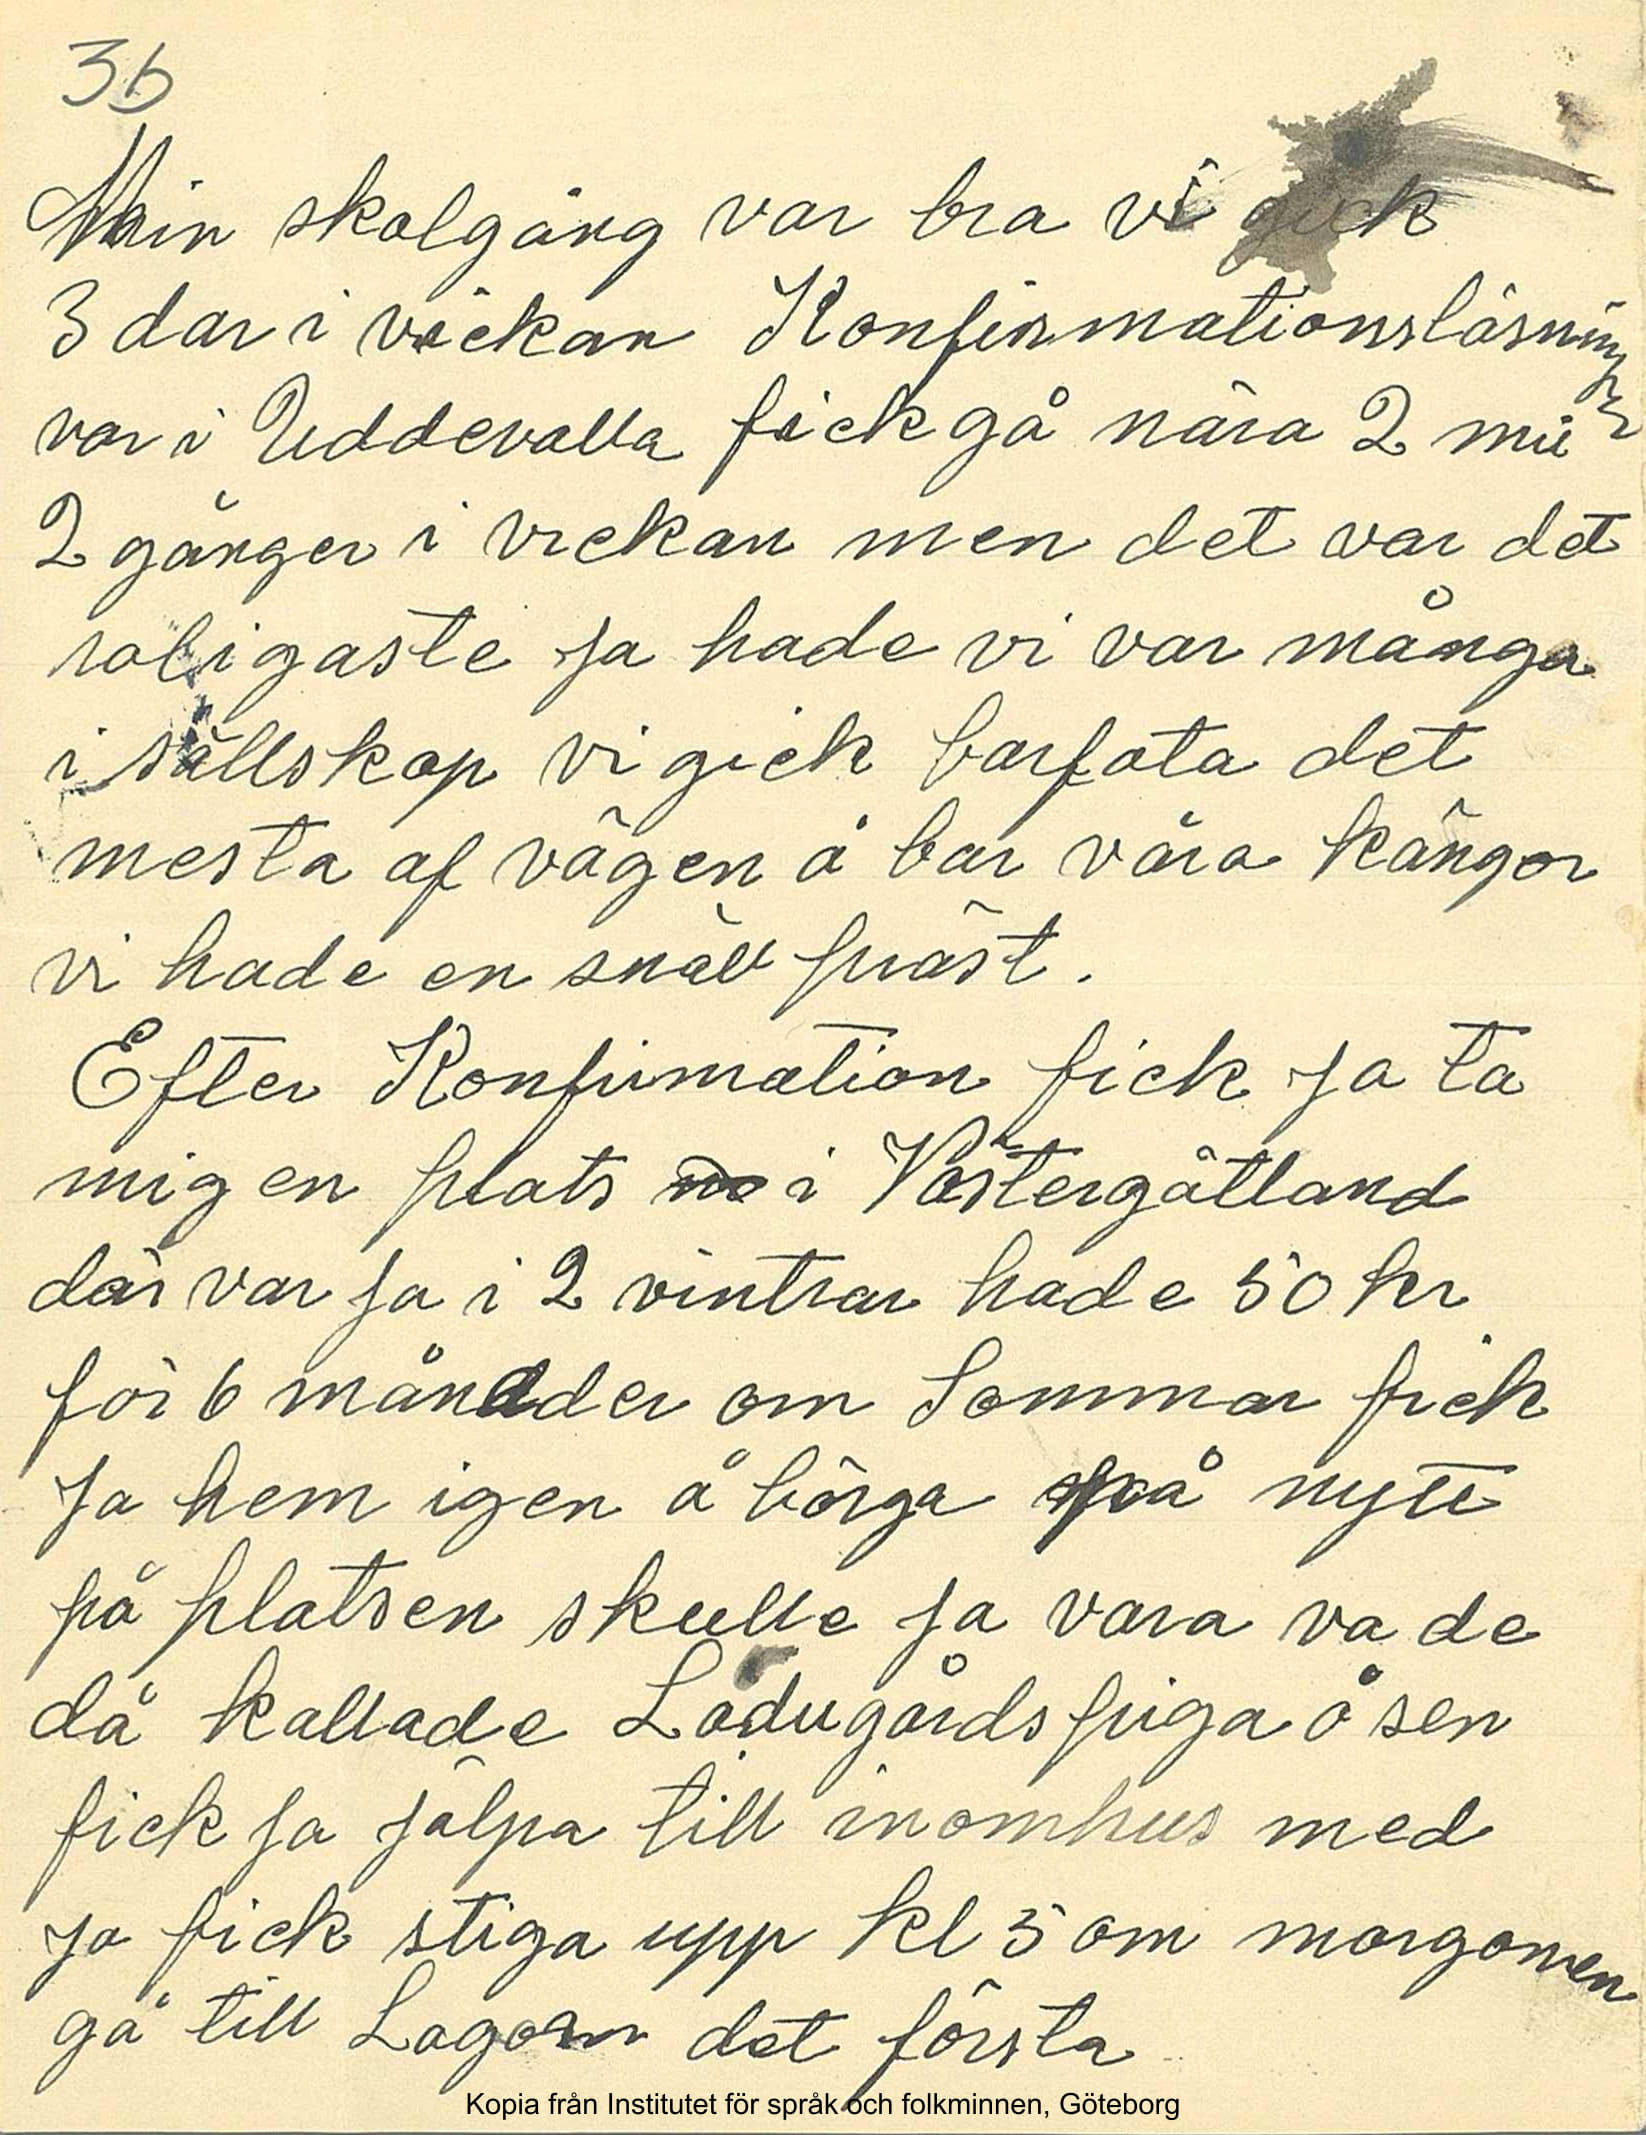 36
Min skolgång var bra vi gick
3 dar i veckan Konfirmationsläsningen
var i Uddevalla fick gå nära 2 mil
2 gånger i veckan men det var det
roligaste ja hade vi var många
i sällskap vi gick barfota det
mesta af vägen å bar våra kängor
vi hade en snäll präst.
Efter Konfirmation fick ja ta
mig en plats i Västergötland
där var ja i 2 vintrar hade 50 kr
för 6 månader om Sommar fick
ja hem igen å börja på nytt
på platsen skulle ja vara va de
då kallade Ladugårdspiga å sen
fick ja jälpa till inomhus med
ja fick stiga upp kl 5 om morgonen
gå till Lagorn det första
Kopia från Institutet för språk och folkminnen, Göteborg